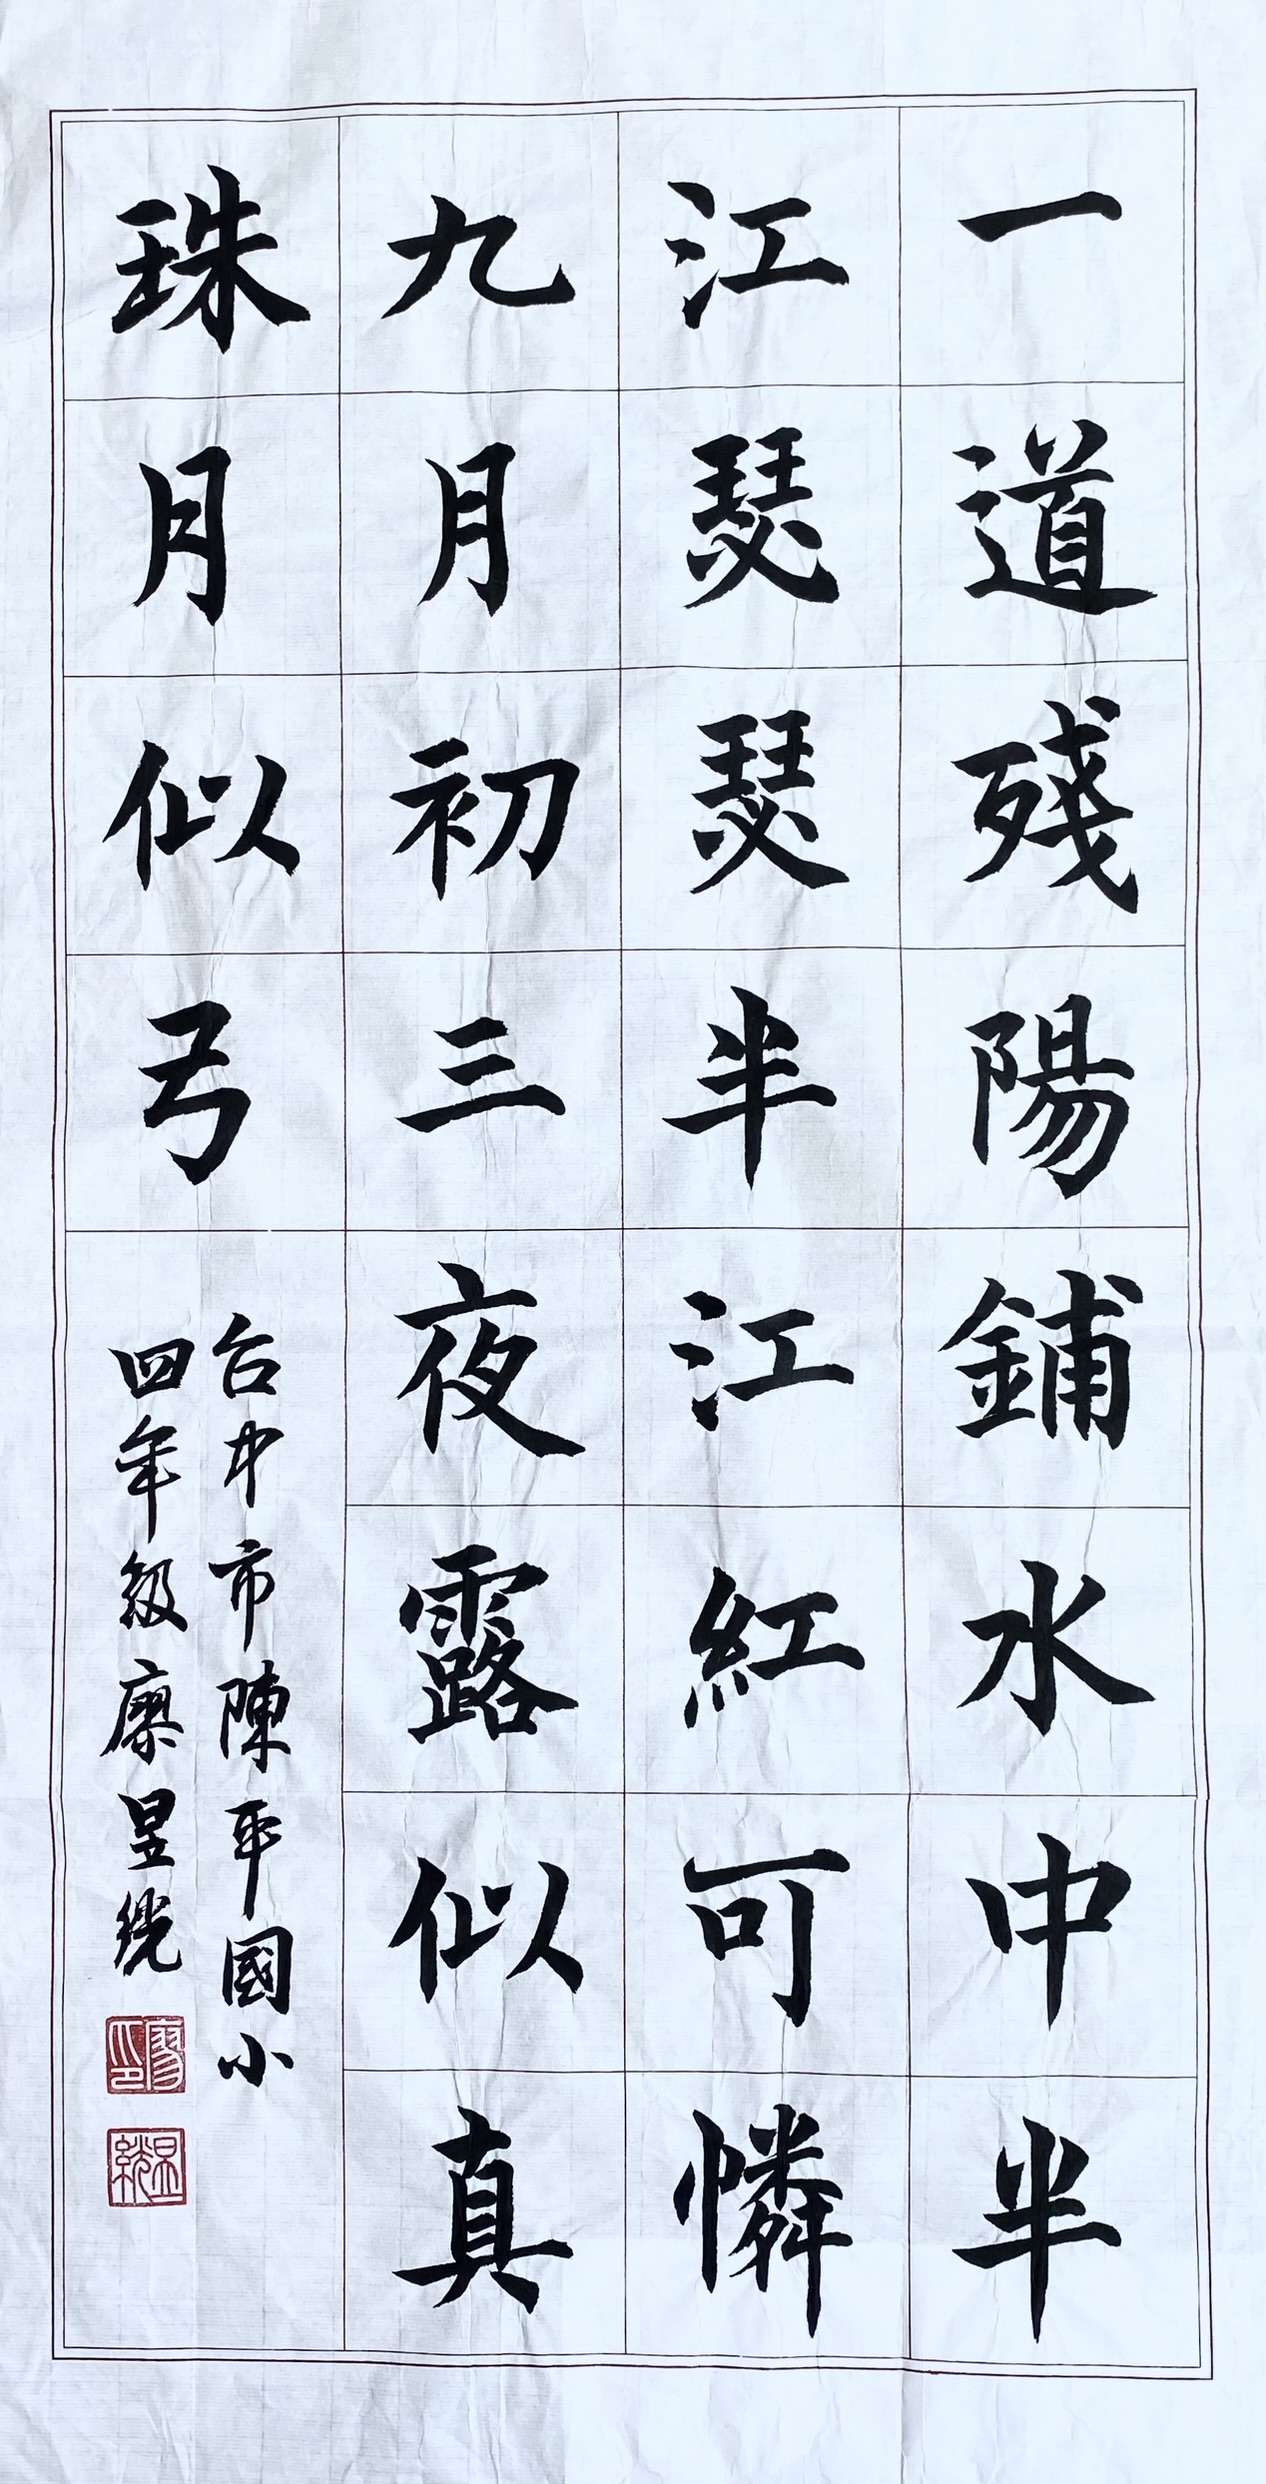 一道殘陽鋪水中半
江瑟瑟半江紅可憐
九月初三夜露似真
珠月似弓
台中市陳平國小
四年級廖昱
廖印